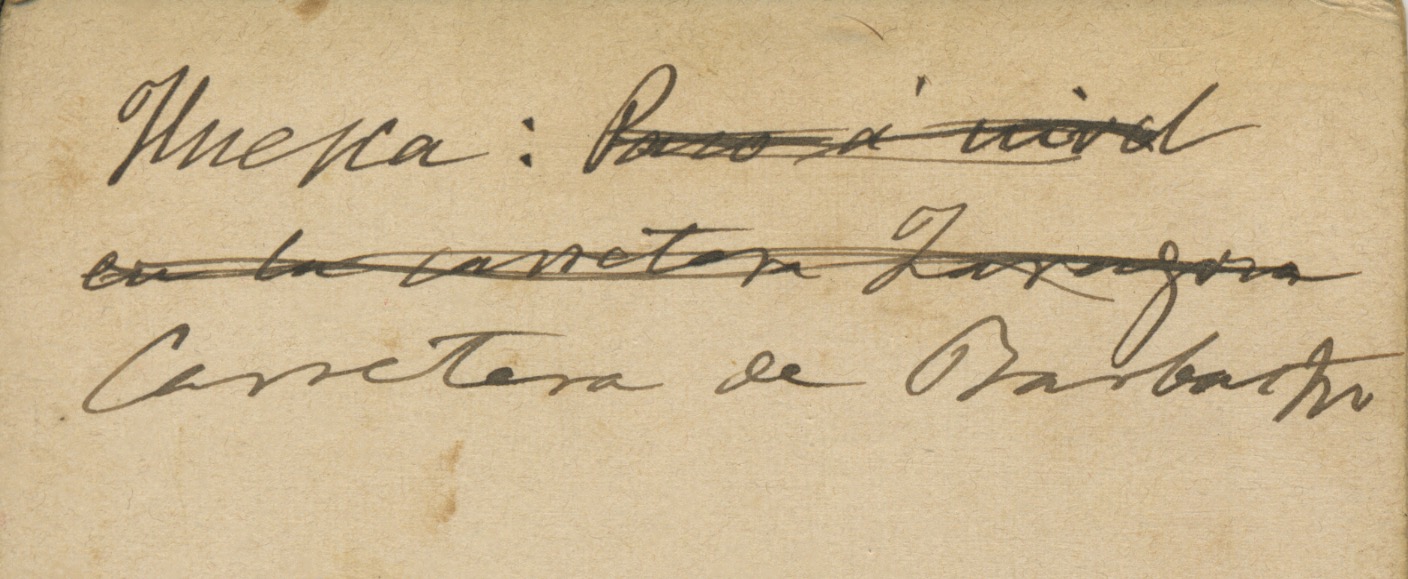 Huesca: Paso á nivel
en la carretera Zaragoza
Carretera de Barbastro